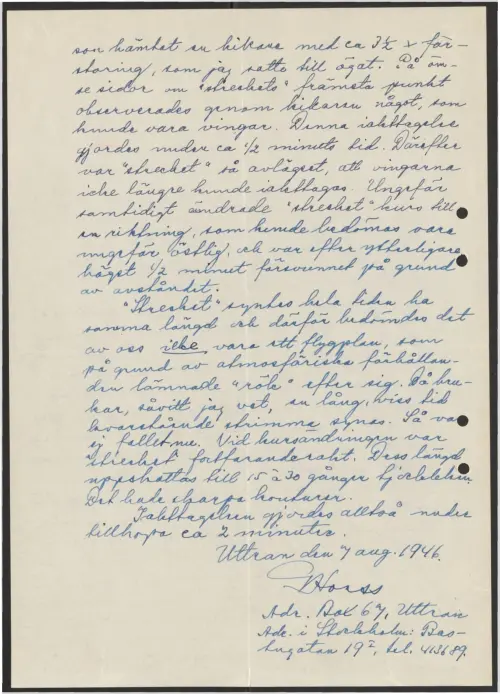 son hämtat en kikare med ca 3½ x för-
storing, som jag satte till ögat. På öm-
se sidor om "streckets" främsta punkt
observerades genom kikaren något, som
kunde vara vingar. Denna iakttagelse
gjordes under ca ½ minuts tid. Därefter
var "strecket" så avlägset, att vingarna
icke längre kunde iakttagas. Ungefär
samtidigt ändrade "strecket" kurs till
en riktning, som kunde bedömas vara
ungefär östlig, och var efter ytterligare
högst ½ minut försvunnet på grund
av avståndet.
"Strecket" syntes hela tiden ha
samma längd och därför bedömdes det
av oss icke vara ett flygplan, som
på grund av atmosfäriska förhållan-
den lämnade "rök" efter sig. Då bru-
kar, såvitt jag vet, en lång, viss tid
kvarstående strimma synas. Så var
ej fallet nu. Vid kursändringen var
"strecket" fortfarande rakt. Dess längd
uppskattas till 15 à 30 gånger tjockleken.
Det hade skarpa konturer.
Iakttagelsen gjordes alltså under
tillhopa ca 2 minuter.
Uttran den 7 aug. 1946.
Adr. Box 67, Uttran
Adr. i Stockholm: Bas-
tugatan 19², tel. 413689.